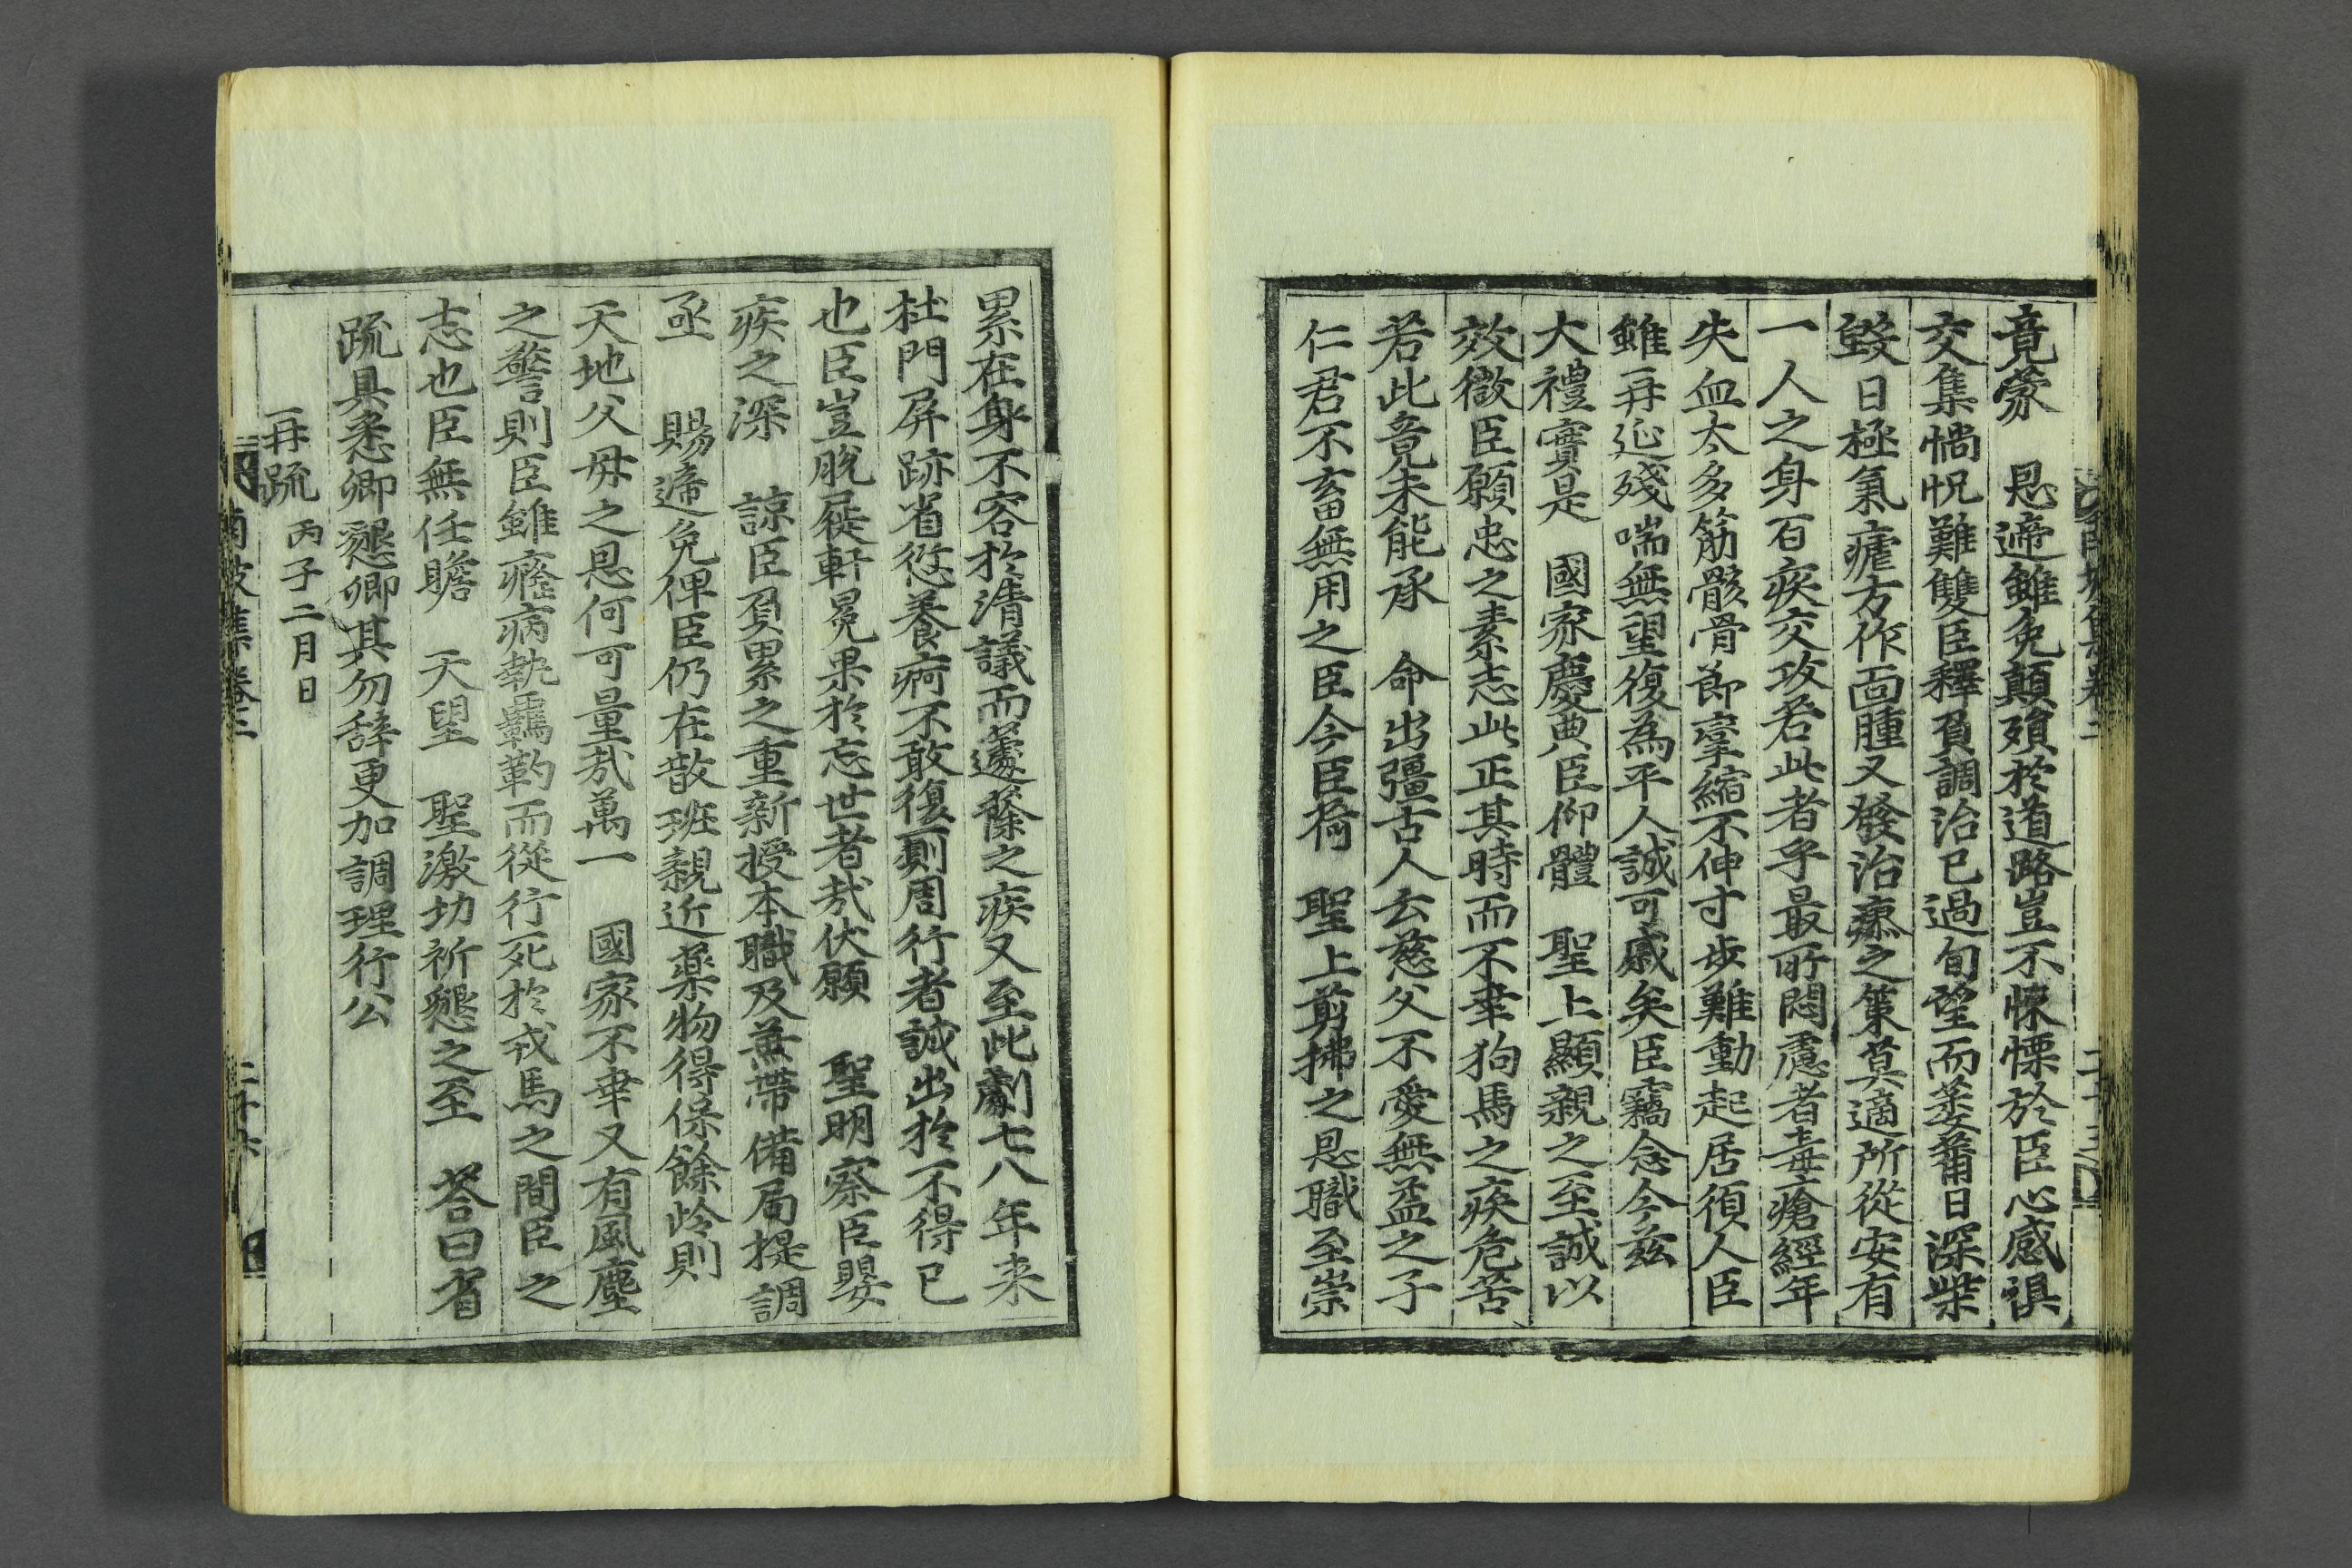 竟蒙 恩遞雖免顚殞於道路豈不悚慄於臣心感懼
交集惝怳難雙臣釋負調治已過旬望而萎薾日深柴
毁日極氣瘧方作面腫又發治療之策莫適所從安有
一人之身百疾交攻若此者乎最所悶慮者毒瘡經年
失血太多筋骸骨節攣縮不伸寸步難動起居須人臣
雖再延殘喘無望復爲平人誠可慼矣臣竊念今玆
大禮實是 國家慶典臣仰體 聖上顯親之至誠以
效微臣願忠之素志此正其時而不幸狗馬之疾危苦
若此竟未能承 命出彊古人云慈父不愛無益之子
仁君不畜無用之臣今臣荷 聖上剪拂之恩職至崇
累在身不容於淸議而蘧蒢之疾又至此劇七八年来
杜門屛跡省愆養痾不敢復厠周行者誠出於不得已
也臣豈脫屣軒冕果於忘世者哉伏願 聖明察臣嬰
疾之深 諒臣負累之重新授本職及兼帶備局提調
亟 賜遞免俾臣仍在散班親近藥物得保餘齡則
天地父母之恩何可量哉萬一 國家不幸又有風塵
之警則臣雖癃病執羈靮而從行死於戎馬之間臣之
志也臣無任瞻 天望 聖激切祈懇之至 荅曰省
疏具悉卿懇卿其勿辭更加調理行公
再疏 丙子二月日
南坡集卷三